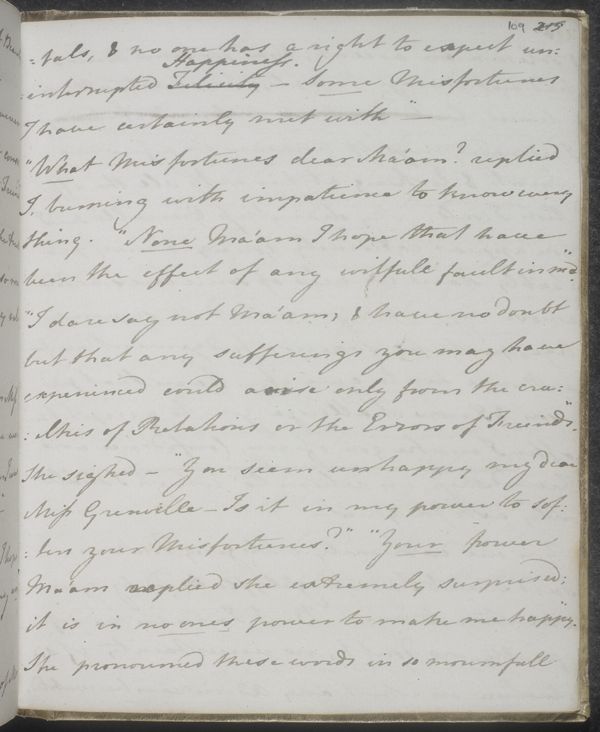 109 215
:tals, & no one has a right to expect un:
Happiness.
:interrupted Felicity — Some Misfortunes
I have certainly met with" —
"What Misfortunes dear Ma'am? replied
I, burning with impatience to know every
thing. "None Ma'am I hope that have
been the effect of any wilfull fault in me".
"I dare say not Ma'am, & have no doubt
but that any sufferings you may have
experienced could arise only from the cru:
:elties of Relations or the Errors of Friends".
She sighed — "You seem unhappy my dear
Miss Grenville — Is it in my power to sof:
:ten your Misfortunes?" "Your power
Ma'am replied she extremely surprised;
it is in no ones power to make me happy".
She pronounced these words in so mournfull